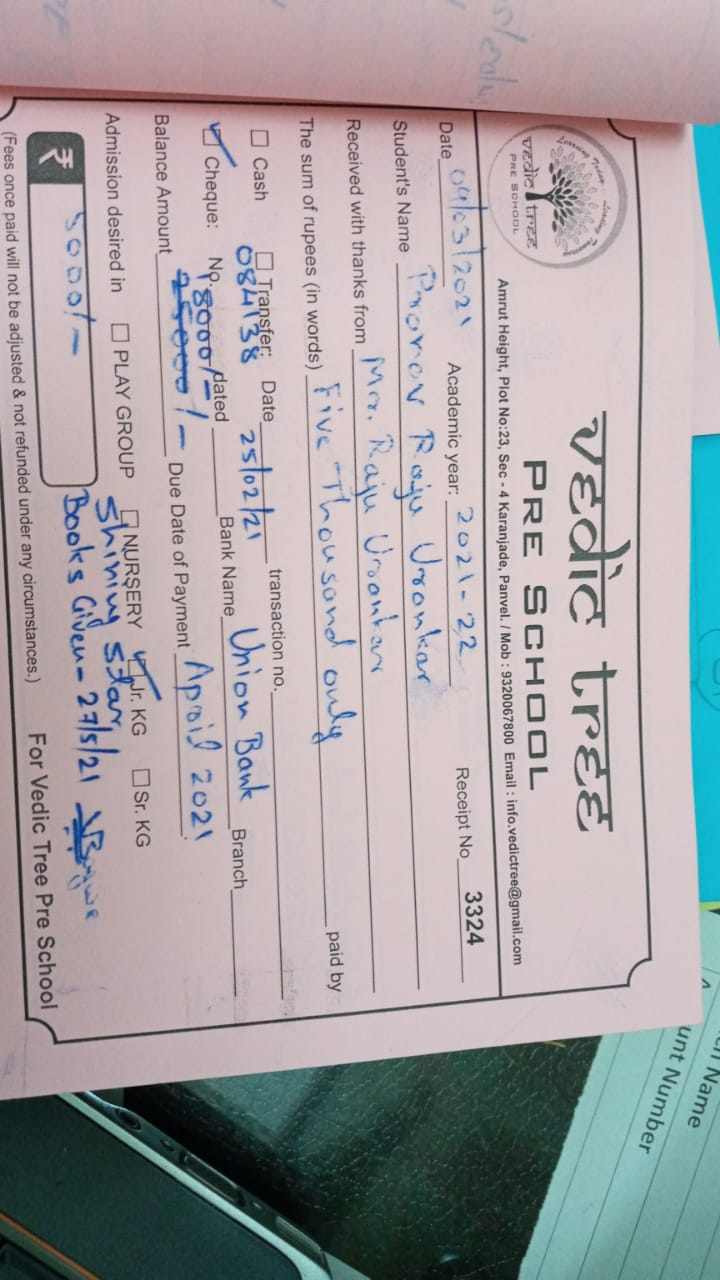 Learning Through Living
vedic tree
PRE SCHOOL
vedic tree
PRE SCHOOL
Amrut Height, Plot No:23, Sec - 4 Karanjade, Panvel. / Mob : 9320067800 Email : info.vedictree@gmail.com
Date 04/03/2021 Academic year: 2021-22 Receipt No 3324
Student's Name Pranav Raju Urankar
Received with thanks from Mr. Raju Urankar
The sum of rupees (in words) Five Thousand only paid by
Cash Transfer: Date transaction no.
Cheque: No. 084138 dated 25/02/21 Bank Name Union Bank Branch
8000/-
Balance Amount 25000/- Due Date of Payment April 2021
Admission desired in PLAY GROUP NURSERY Jr. KG Sr. KG
Shining Star
₹ 5000/- Books Given - 27/5/21
(Fees once paid will not be adjusted & not refunded under any circumstances.) For Vedic Tree Pre School
Name
unt Number